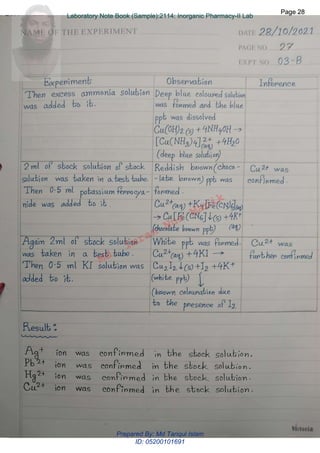 Laboratory Note Book (Sample);2114; Inorganic Pharmacy-II Lab
Page 28
NAME OF THE EXPERIMENT
DATE 28/10/2021
PAGE NO 27
EXPT NO 03-B
Experiment
Observation
Inference
Then excess ammonia solution
was added to it.
Deep blue coloured solution
was formed and the blue
ppt was dissolved
Cu(OH)2 (s) + 4NH4OH →
[Cu(NH3)4]2+ (aq) + 4H2O
(deep blue solution)
2 ml of stock solution of stock
solution was taken in a test tube.
Then 0.5 ml potassium ferrocya-
nide was added to it.
Reddish brown (choco-
-late brown) ppt was
formed.
Cu2+(aq) + K4[Fe(CN)6](aq)
→ Cu[Fe(CN)6]↓(s) + 4K+
(aq)
(chocolate brown ppt)
Cu2+ was
confirmed.
Again 2ml of stock solution
was taken in a test tube.
Then 0.5 ml KI solution was
added to it.
White ppt was formed.
Cu2+(aq) + 4KI →
Cu2I2↓(s) + I2 + 4K+
(white ppt)
(brown colouration due
to the presence of I2
Cu2+ was
further confirmed
Result:
Ag+ ion was confirmed in the stock solution.
Pb2+ ion was confirmed in the stock solution.
Hg2+ ion was confirmed in the stock solution.
Cu2+ ion was confirmed in the stock solution.
Victoria
Prepared By: Md Tariqul Islam
ID: 05200101691